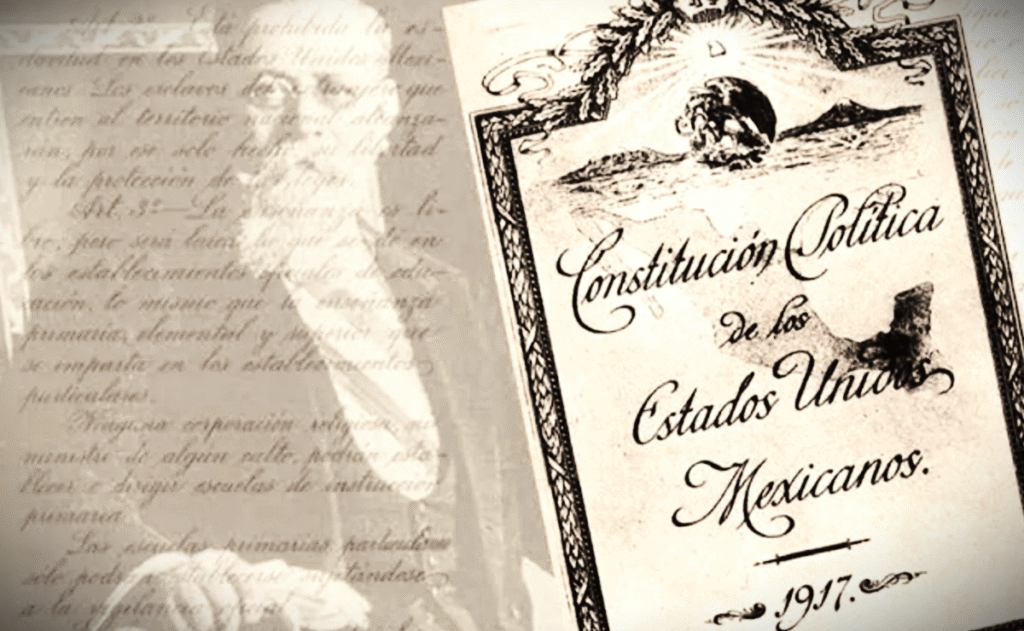 Art. 2º Está prohibida la es-
clavitud en los Estados Unidos Mexi-
canos. Los esclavos del extranjero que
entren al territorio nacional alcanza-
rán, por ese solo hecho, su libertad
y la protección de las leyes.
Art. 3º—La enseñanza es li-
bre; pero será laica la que se dé en
los establecimientos oficiales de edu-
cación, lo mismo que la enseñanza
primaria, elemental y superior que
se imparta en los establecimientos
particulares.
Ninguna corporación religiosa, ni
ministro de algún culto, podrán esta-
blecer o dirigir escuelas de instrucción
primaria.
Las escuelas primarias particulares
sólo podrán establecerse sujetándose
a la vigilancia oficial
Constitución Política
de los
Estados Unidos
Mexicanos.
1917.